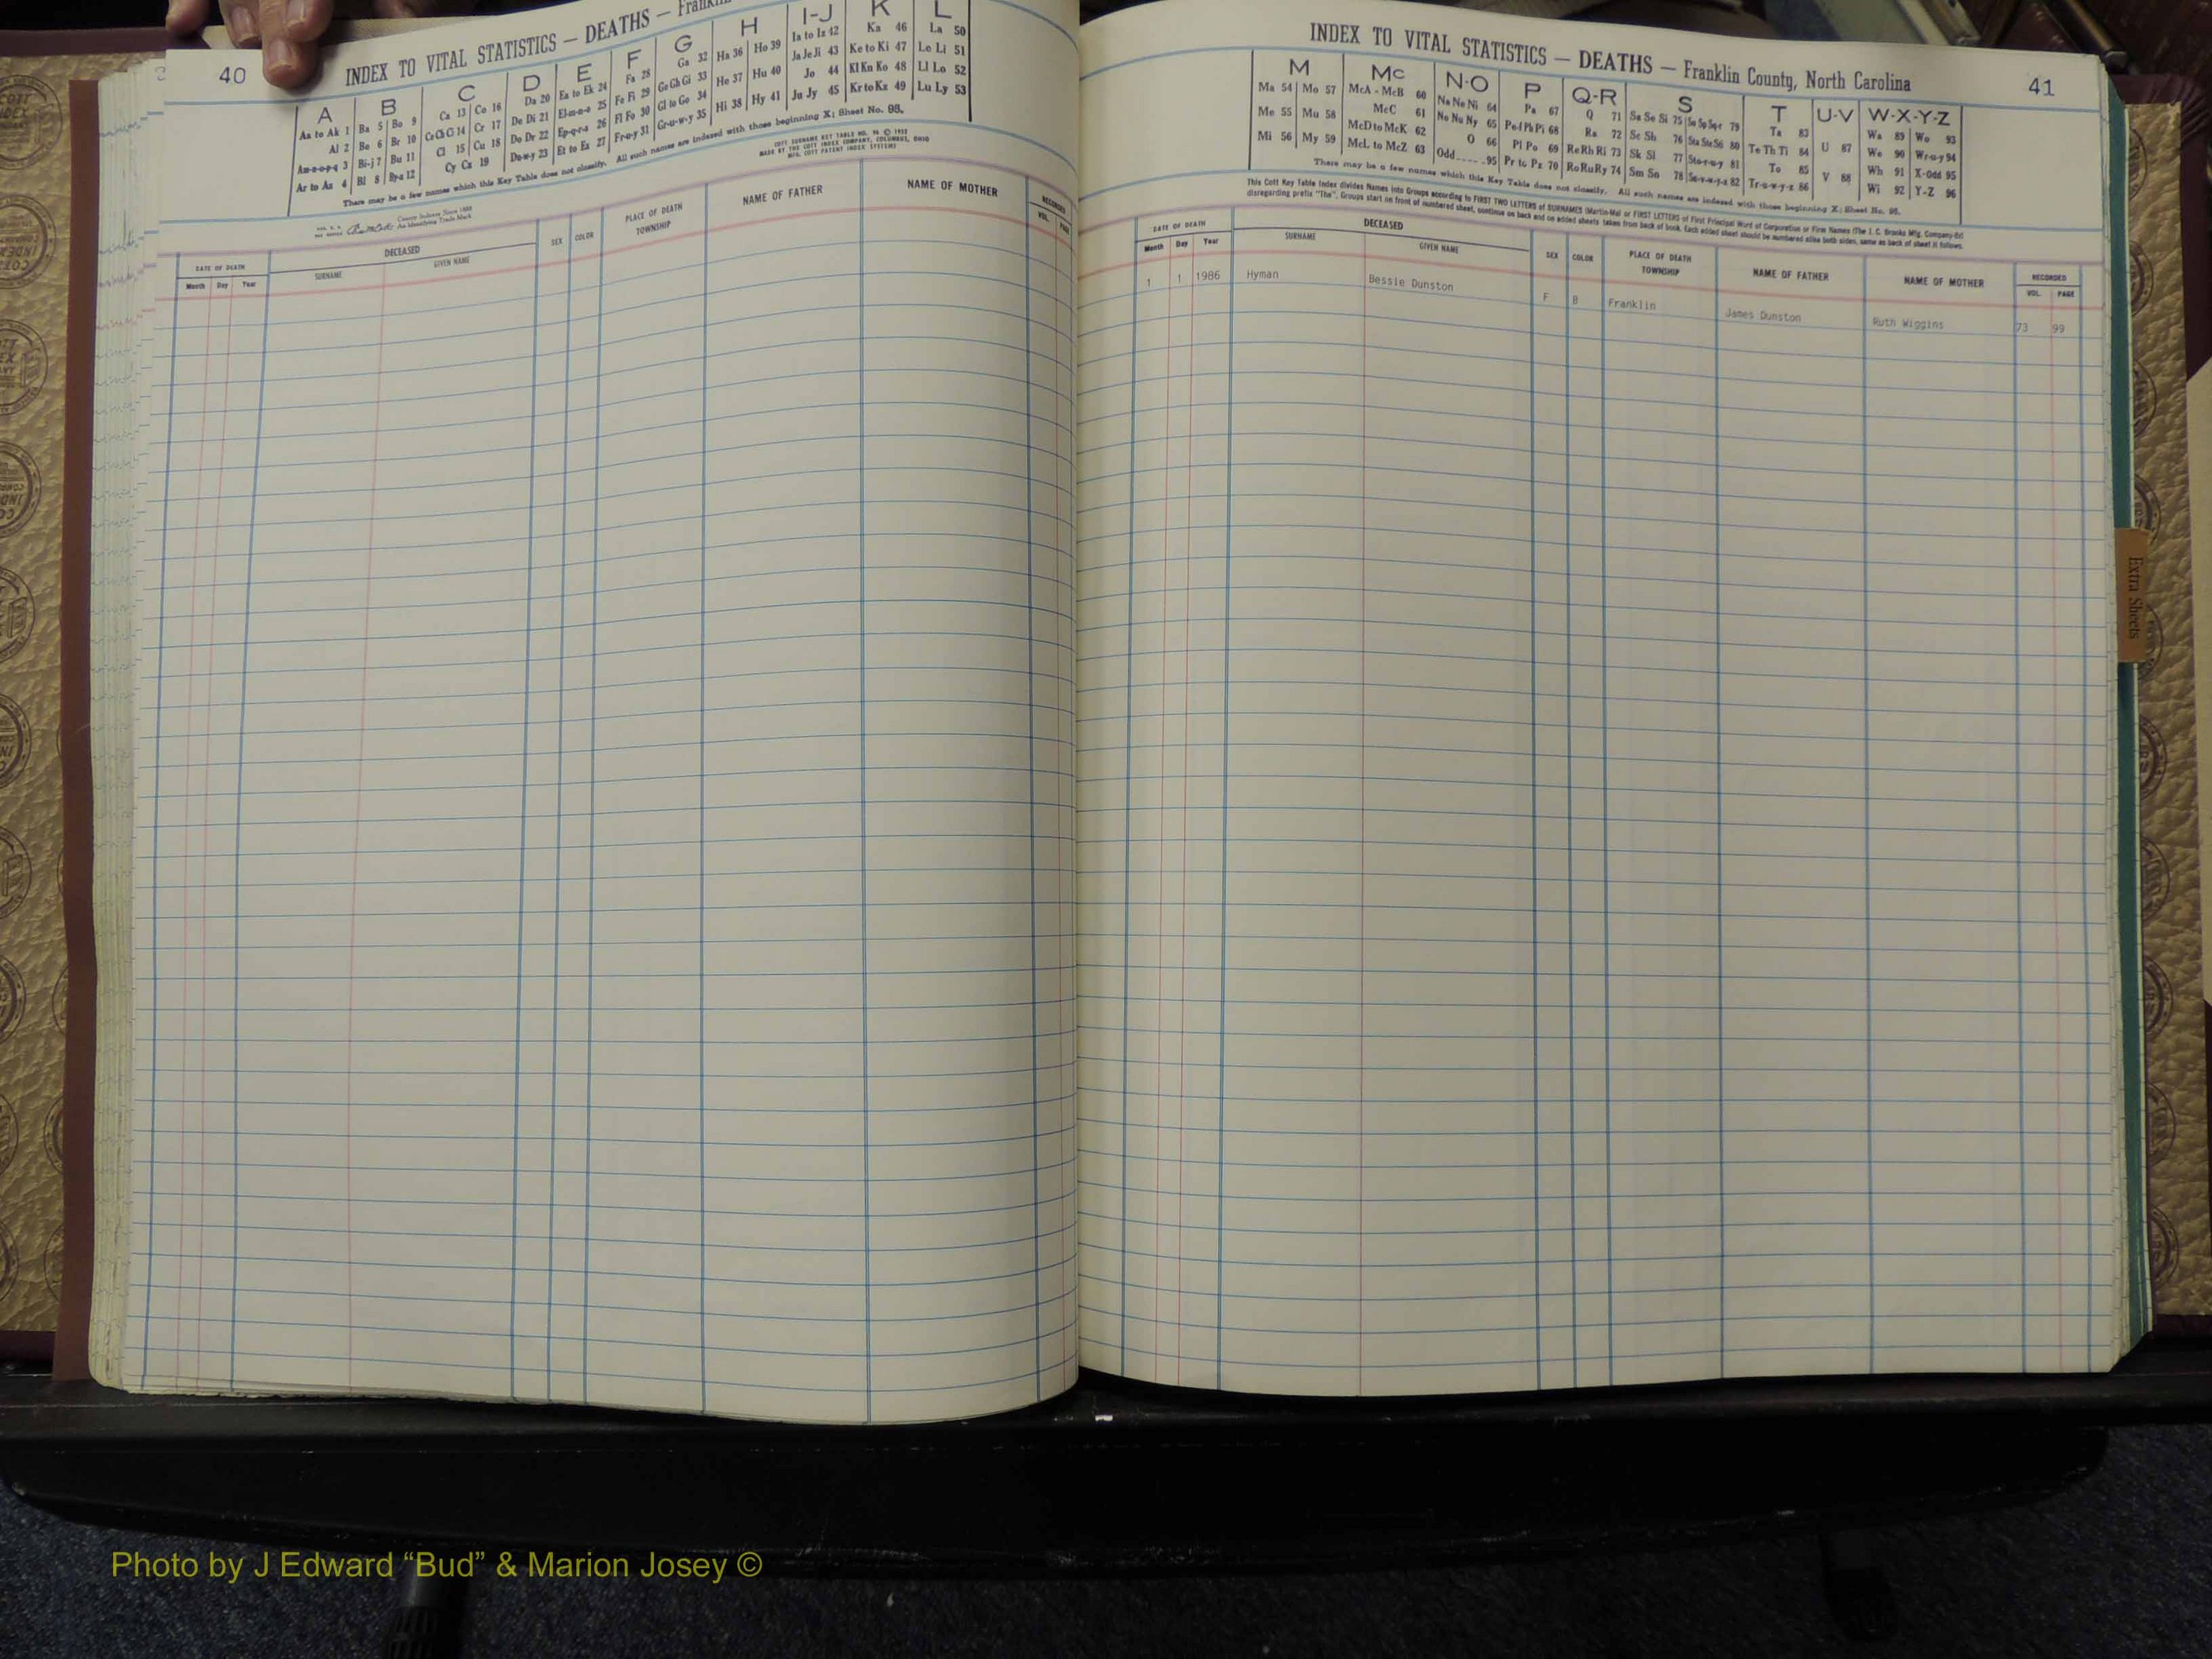 40
INDEX TO VITAL STATISTICS — DEATHS —
A B C D E F G H I-J K L
Aa to Ak 1 Ba 5 Bo 9 Ca 13 Co 16 Da 20 Ea to Ek 24 Fa 28 Ga 32 Ha 36 Ho 39 Ia to Iz 42 Ka 46 La 50
Al 2 Be 6 Br 10 Ce Ch Ci 14 Cr 17 De Di 21 El-m-n-o 25 Fe Fi 29 Ge Gh Gi 33 He 37 Hu 40 Ja Je Ji 43 Ke to Ki 47 Le Li 51
Am-n-o-p-q 3 Bi-j 7 Bu 11 Cl 15 Cu 18 Do Dr 22 Ep-q-r-s 26 Fl Fo 30 Gl to Go 34 Hi 38 Hy 41 Jo 44 Kl Kn Ko 48 Ll Lo 52
Ar to Az 4 Bl 8 By-z 12 Cy Cz 19 Du-w-y 23 Et to Ez 27 Fr-u-y 31 Gr-u-w-y 35 Ju Jy 45 Kr to Kz 49 Lu Ly 53
There may be a few names which this Key Table does not classify. All such names are indexed with those beginning X; Sheet No. 95.
COTT SURNAME KEY TABLE NO. 96 © 1932
MADE BY THE COTT INDEX COMPANY, COLUMBUS, OHIO
MFG. COTT PATENT INDEX SYSTEMS
County Indexes Since 1888
An Identifying Trade Mark
DATE OF DEATH DECEASED SEX COLOR PLACE OF DEATH NAME OF FATHER NAME OF MOTHER RECORDED
Month Day Year SURNAME GIVEN NAME TOWNSHIP VOL. PAGE
INDEX TO VITAL STATISTICS — DEATHS — Franklin County, North Carolina
41
M Mc N-O P Q-R S T U-V W-X-Y-Z
Ma 54 Mo 57 McA - McB 60 Na Ne Ni 64 Pa 67 Q 71 Sa Sc Si 75 79 Ta 83 U 87 Wa 89 Wo 93
Me 55 Mu 58 McC 61 No Nu Ny 65 Pe-f Ph Pi 68 Ra 72 Se Sh 76 Sta Ste S6 80 Te Th Ti 84 V 88 We 90 Wr-u-y 94
Mi 56 My 59 McD to McK 62 O 66 Pl Po 69 Re Rh Ri 73 Sk Sl 77 Sto-r-u-y 81 To 85 Wh 91 X-Odd 95
McL to McZ 63 Odd 95 Pr to Pz 70 Ro Ru Ry 74 Sm Sn 78 Su-v-w-y-z 82 Tr-u-w-y-z 86 Wi 92 Y-Z 96
There may be a few names which this Key Table does not classify. All such names are indexed with those beginning X; Sheet No. 95.
This Cott Key Table Index divides Names into Groups according to FIRST TWO LETTERS of SURNAMES (Martin-Ma) or FIRST LETTERS of First Principal Word of Corporation or Firm Names (The J. C. Brooks Mfg. Company-Br)
disregarding prefix "The". Groups start on front of numbered sheet, continue on back and on added sheets taken from back of book. Each added sheet should be numbered alike both sides, same as back of sheet it follows.
DATE OF DEATH DECEASED SEX COLOR PLACE OF DEATH NAME OF FATHER NAME OF MOTHER RECORDED
Month Day Year SURNAME GIVEN NAME TOWNSHIP VOL. PAGE
1 1 1986 Hyman Bessie Dunston F B Franklin James Dunston Ruth Wiggins 73 99
Extra Sheets
Photo by J Edward “Bud” & Marion Josey ©